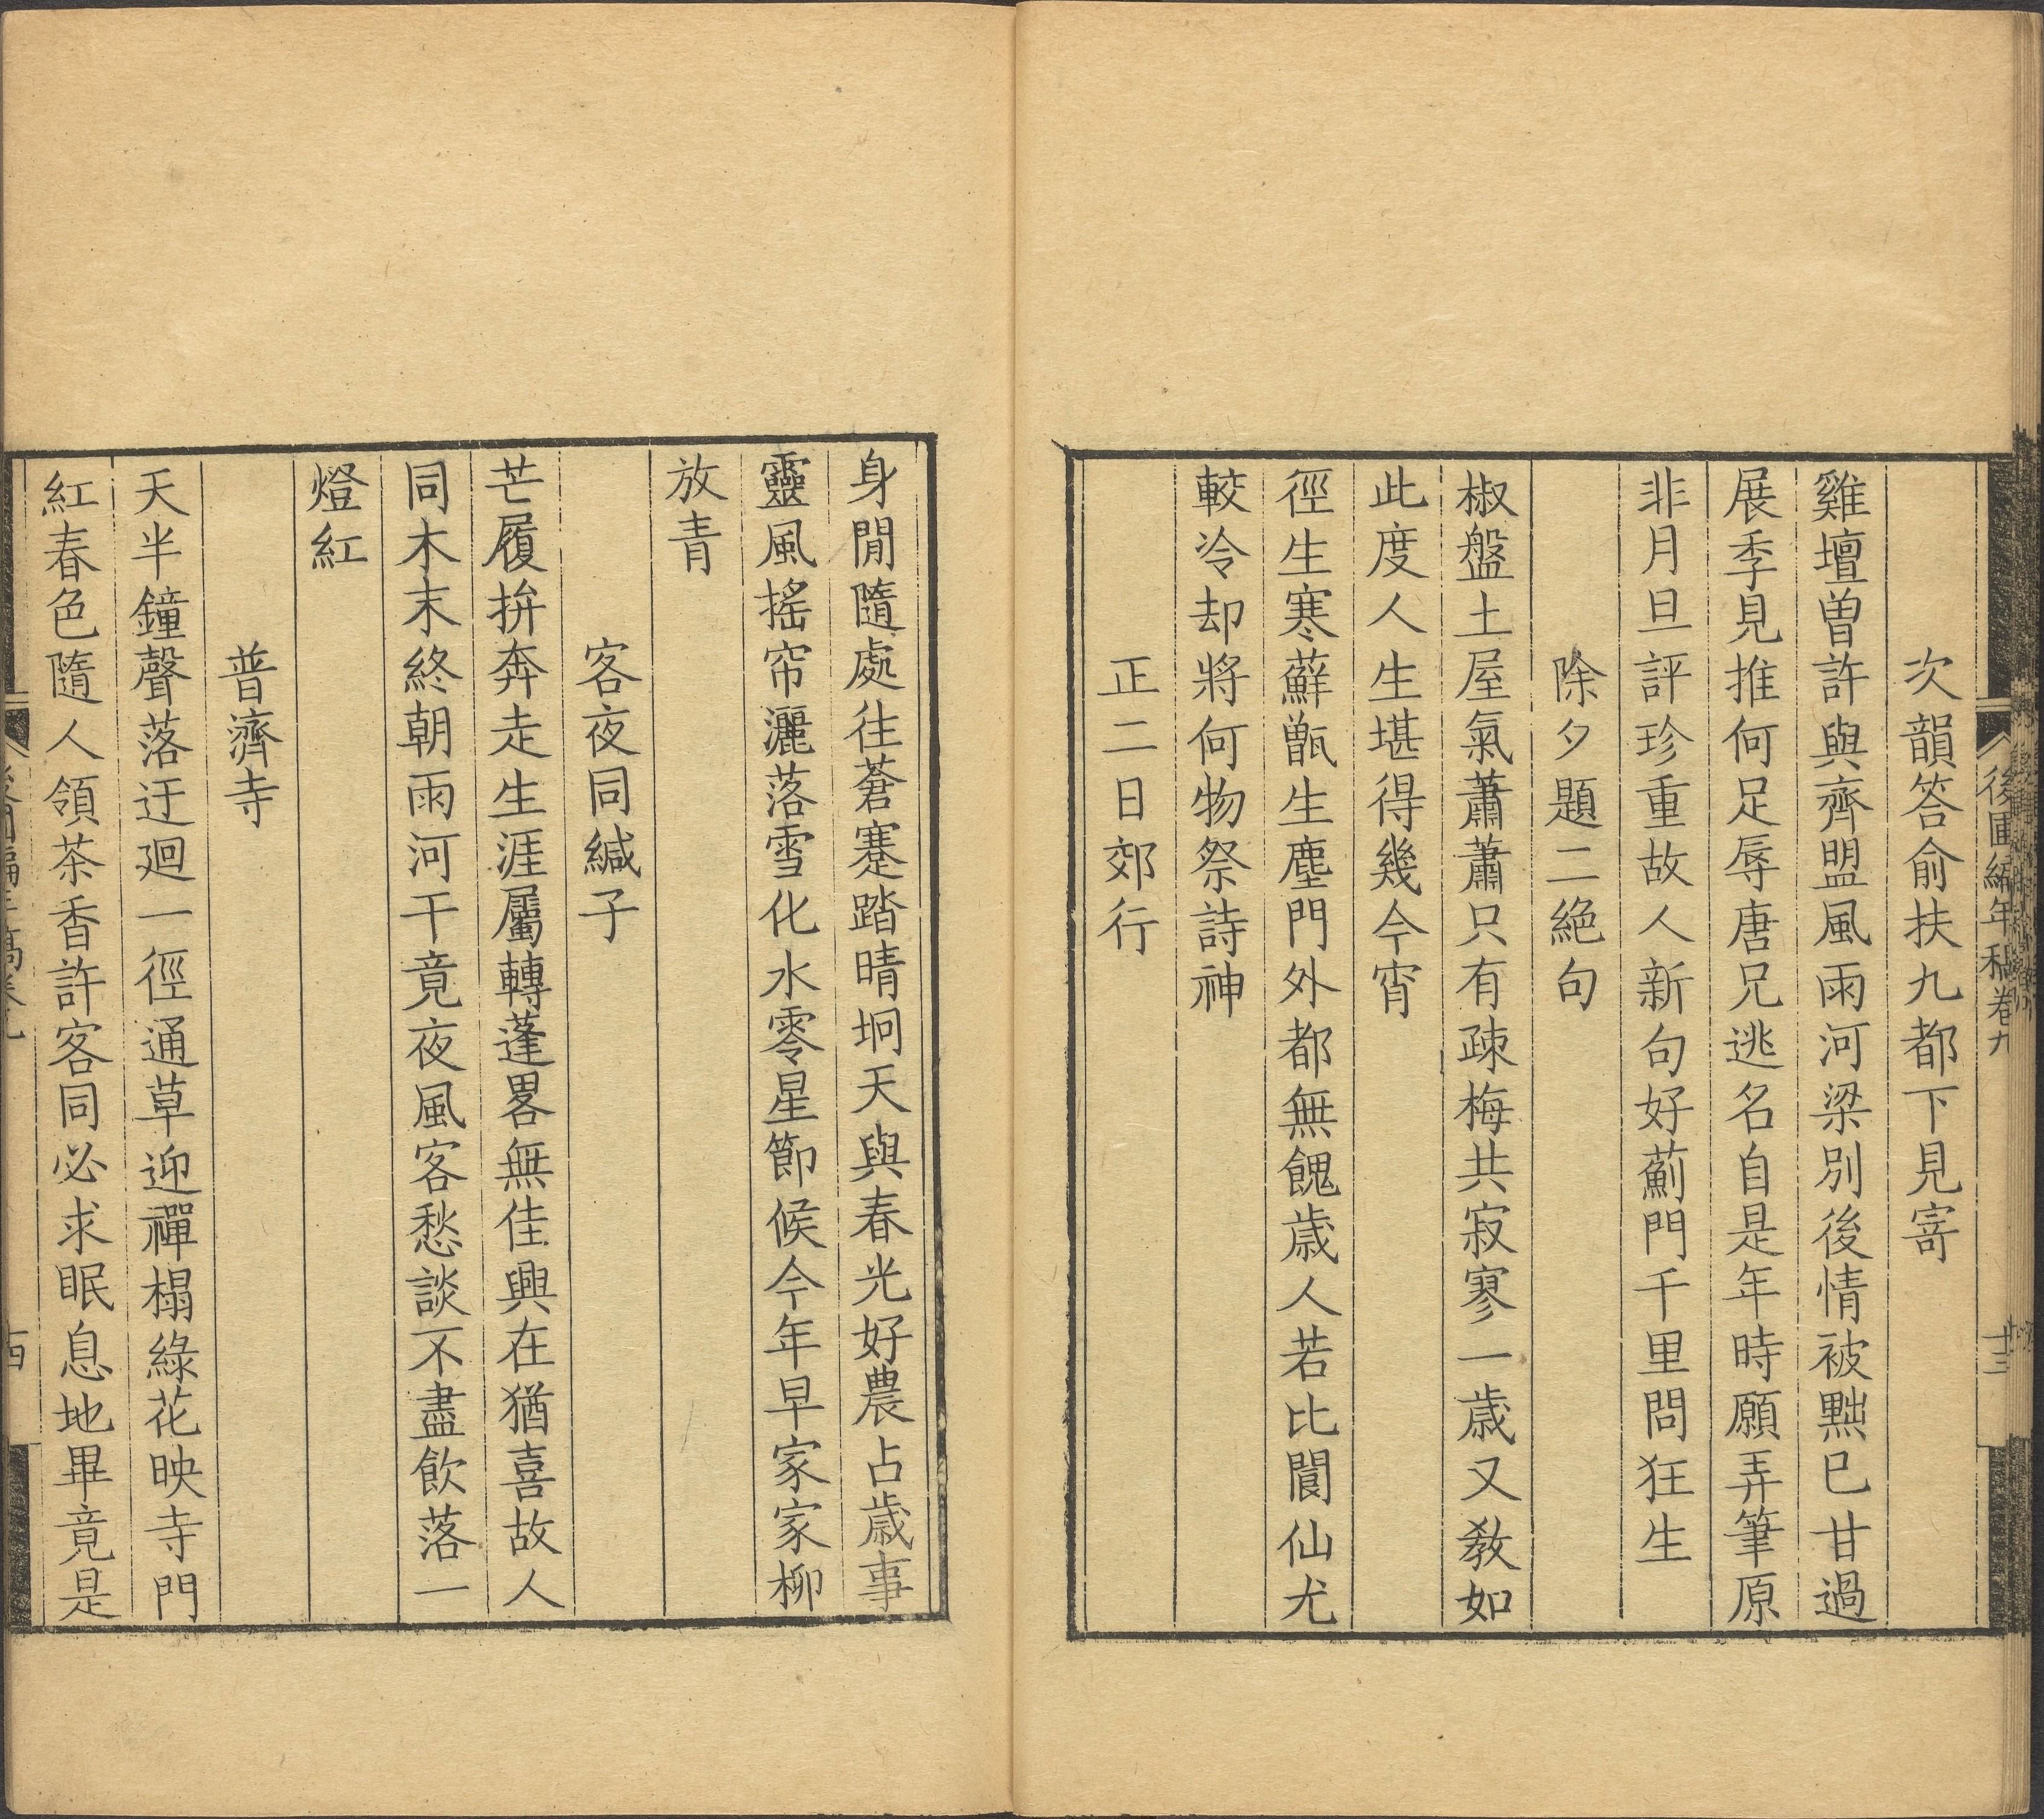 後圃編年稿卷九
十三
次韻答俞扶九都下見寄
雞壇曾許與齊盟風雨河梁別後情被黜已甘過
展季見推何足辱唐兄逃名自是年時願弄筆原
非月旦評珍重故人新句好薊門千里問狂生
除夕題二絕句
椒盤土屋氣蕭蕭只有疎梅共寂寥一歲又教如
此度人生堪得幾今宵
徑生寒蘚甑生塵門外都無餽歲人若比閬仙尤
較冷却將何物祭詩神
正二日郊行
身閒隨處往蒼蹇踏晴坰天與春光好農占歲事
靈風搖帘灑落雪化水零星節候今年早家家柳
放青
客夜同緘子
芒履拚奔走生涯屬轉蓬畧無佳興在猶喜故人
同木末終朝雨河干竟夜風客愁談不盡飲落一
燈紅
普濟寺
天半鐘聲落迂迴一徑通草迎禪榻綠花映寺門
紅春色隨人領茶香許客同必求眠息地畢竟是